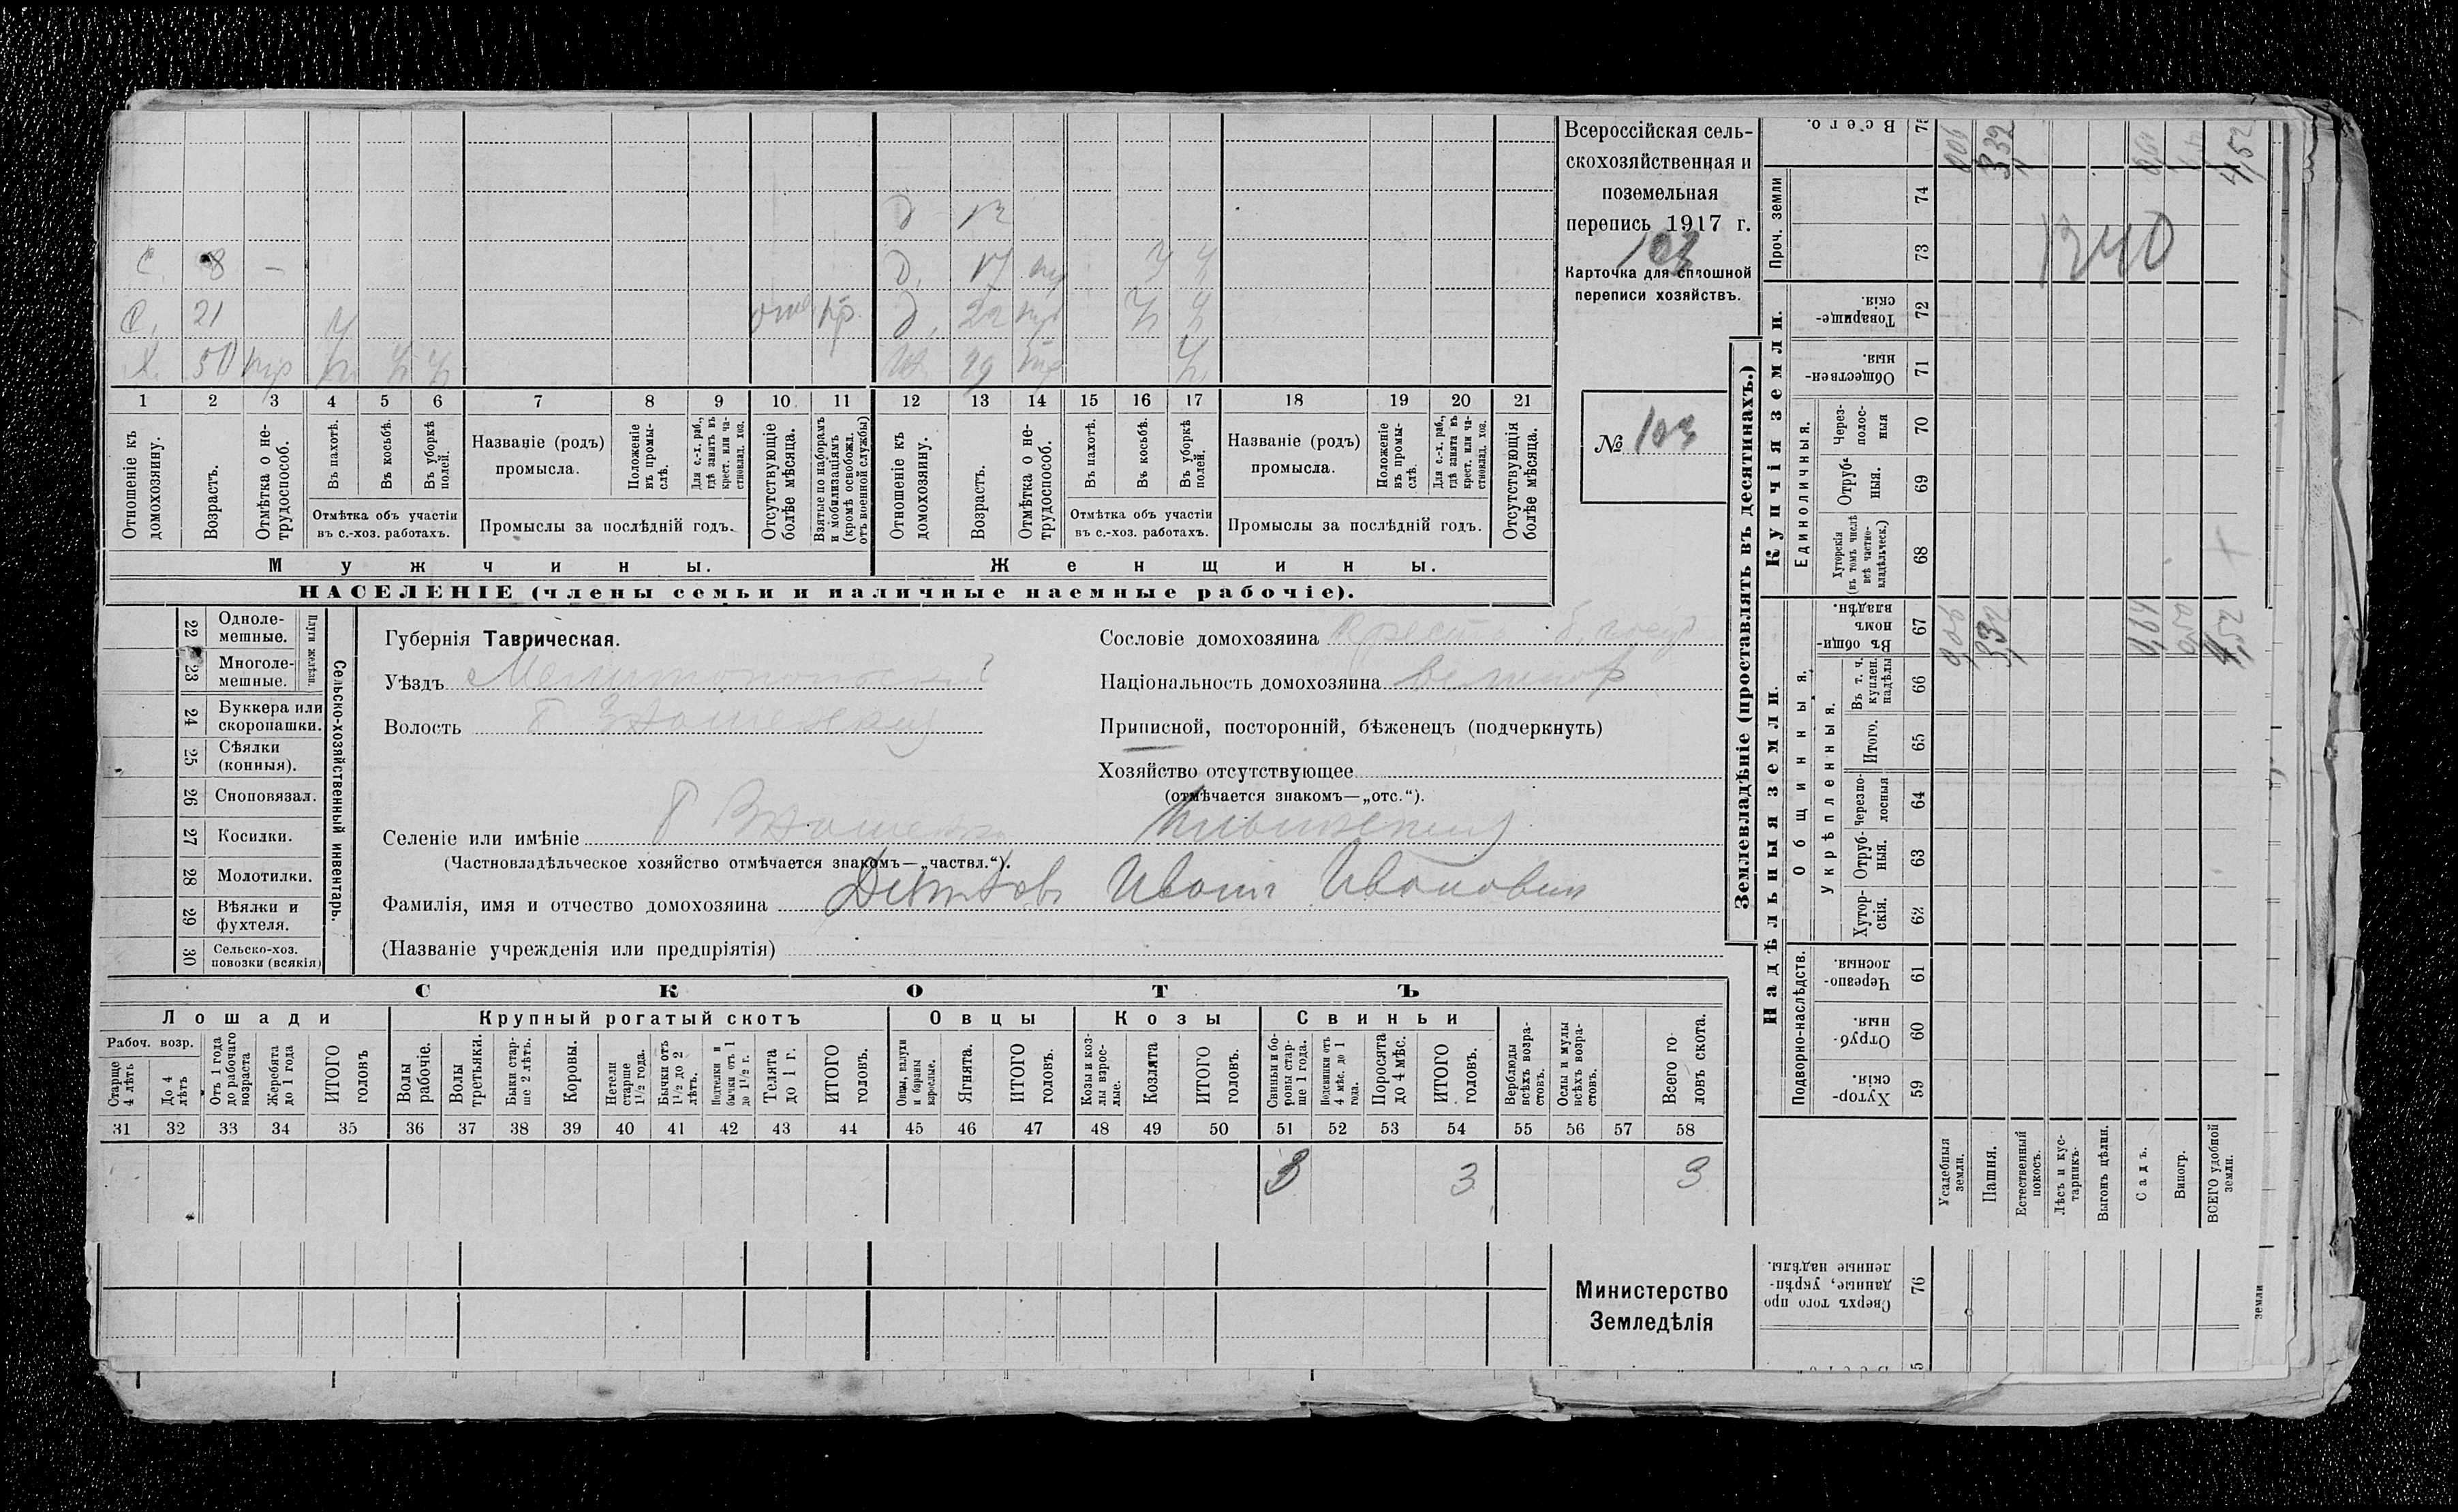 Всероссійская сель-
скохозяйственная и
поземельная
перепись 1917 г.
103
Карточка для сплошной
переписи хозяйствъ.
№ 103
д 12
с. 8 —
д. 17
с. 21
д. 22
х. 50
1 2 3 4 5 6 7 8 9 10 11 12 13 14 15 16 17 18 19 20 21
Отношеніе къ домохозяину.
Возрастъ.
Отмѣтка о не-трудоспособ.
Въ пахотѣ.
Въ косьбѣ.
Въ уборкѣ полей.
Отмѣтка объ участіи
въ с.-хоз. работахъ.
Названіе (родъ)
промысла.
Положеніе въ промы-слѣ.
Для с.-х. раб., гдѣ занятъ въ крест. или ча-стновлад. хоз.
Промыслы за послѣдній годъ.
Отсутствующіе болѣе мѣсяца.
Взятые по наборамъ и мобилизаціямъ (кромѣ освобожд. отъ военной службы)
Отношеніе къ домохозяину.
Возрастъ.
Отмѣтка о не-трудоспособ.
Въ пахотѣ.
Въ косьбѣ.
Въ уборкѣ полей.
Отмѣтка объ участіи
въ с.-хоз. работахъ.
Названіе (родъ)
промысла.
Положеніе въ промы-слѣ.
Для с.-х. раб., гдѣ занята въ крест. или ча-стновлад. хоз.
Промыслы за послѣдній годъ.
Отсутствующія болѣе мѣсяца.
Мужчины.
Женщины.
НАСЕЛЕНІЕ (члены семьи и наличные наемные рабочіе).
22 Одноле-мешные.
23 Многоле-мешные.
Плуги желѣзн.
24 Буккера или скоропашки.
25 Сѣялки (конныя).
26 Сноповязал.
27 Косилки.
28 Молотилки.
29 Вѣялки и фухтеля.
30 Сельско-хоз. повозки (всякія)
Сельско-хозяйственный инвентарь.
Губернія Таврическая.
Уѣздъ Мелитопольский
Волость
Селеніе или имѣніе
(Частновладѣльческое хозяйство отмѣчается знакомъ—„частвл.“).
Фамилія, имя и отчество домохозяина Иванъ Иванович
(Названіе учрежденія или предпріятія)
Сословіе домохозяина
Національность домохозяина великор
Приписной, посторонній, бѣженецъ (подчеркнуть)
Хозяйство отсутствующее
(отмѣчается знакомъ—„отс.“).
СКОТЪ
Лошади
Крупный рогатый скотъ
Овцы
Козы
Свиньи
Рабоч. возр.
Старше 4 лѣтъ
До 4 лѣтъ
Отъ 1 года до рабочаго возраста
Жеребята до 1 года
ИТОГО головъ
Волы рабочіе.
Волы третьяки.
Быки стар-ше 2 лѣтъ.
Коровы.
Нетели старше 1 1/2 года.
Бычки отъ 1 1/2 до 2 лѣтъ.
Подтелки и бычки отъ 1 до 1 1/2 г.
Телята до 1 г.
ИТОГО головъ.
Овцы, валухи и бараны взрослые.
Ягнята.
ИТОГО головъ.
Козы и коз-лы взрос-лые.
Козлята
ИТОГО головъ.
Свиньи и бо-ровы стар-ше 1 года.
Подсвинки отъ 4 мѣс. до 1 года.
Поросята до 4 мѣс.
ИТОГО головъ.
Верблюды всѣхъ возра-стовъ.
Ослы и мулы всѣхъ возра-стовъ.
Всего го-ловъ скота.
31 32 33 34 35 36 37 38 39 40 41 42 43 44 45 46 47 48 49 50 51 52 53 54 55 56 57 58
3 3 3
Министерство
Земледѣлія
Землевладѣніе (проставлять въ десятинахъ.)
Надѣльныя земли.
Купчія земли.
Проч. земли
Всего.
Подворно-наслѣдств.
Общинныя.
Укрѣпленныя.
Единоличныя.
59 Хутор-скія.
60 Отруб-ныя.
61 Черезпо-лосныя.
62 Хутор-скія.
63 Отруб-ныя.
64 Черезпо-лосныя
65 Итого.
66 Въ т. ч. куплен. надѣлы
67 Въ общин-номъ владѣн.
68 Хуторскія (въ томъ числѣ всѣ частно-владѣльческ.)
69 Отруб-ныя.
70 Через-полос-ныя
71 Обществен-ныя.
72 Товарище-скія.
73
74
1340
Усадебныя земли.
Пашня.
Естественный покосъ.
Лѣсъ и кус-тарникъ.
Выгонъ цѣлин.
Садъ.
Виногр.
ВСЕГО удобной земли.
0,06 3,32 4,52
76 Сверхъ того про-данные, укрѣп-ленные надѣлы.
земли